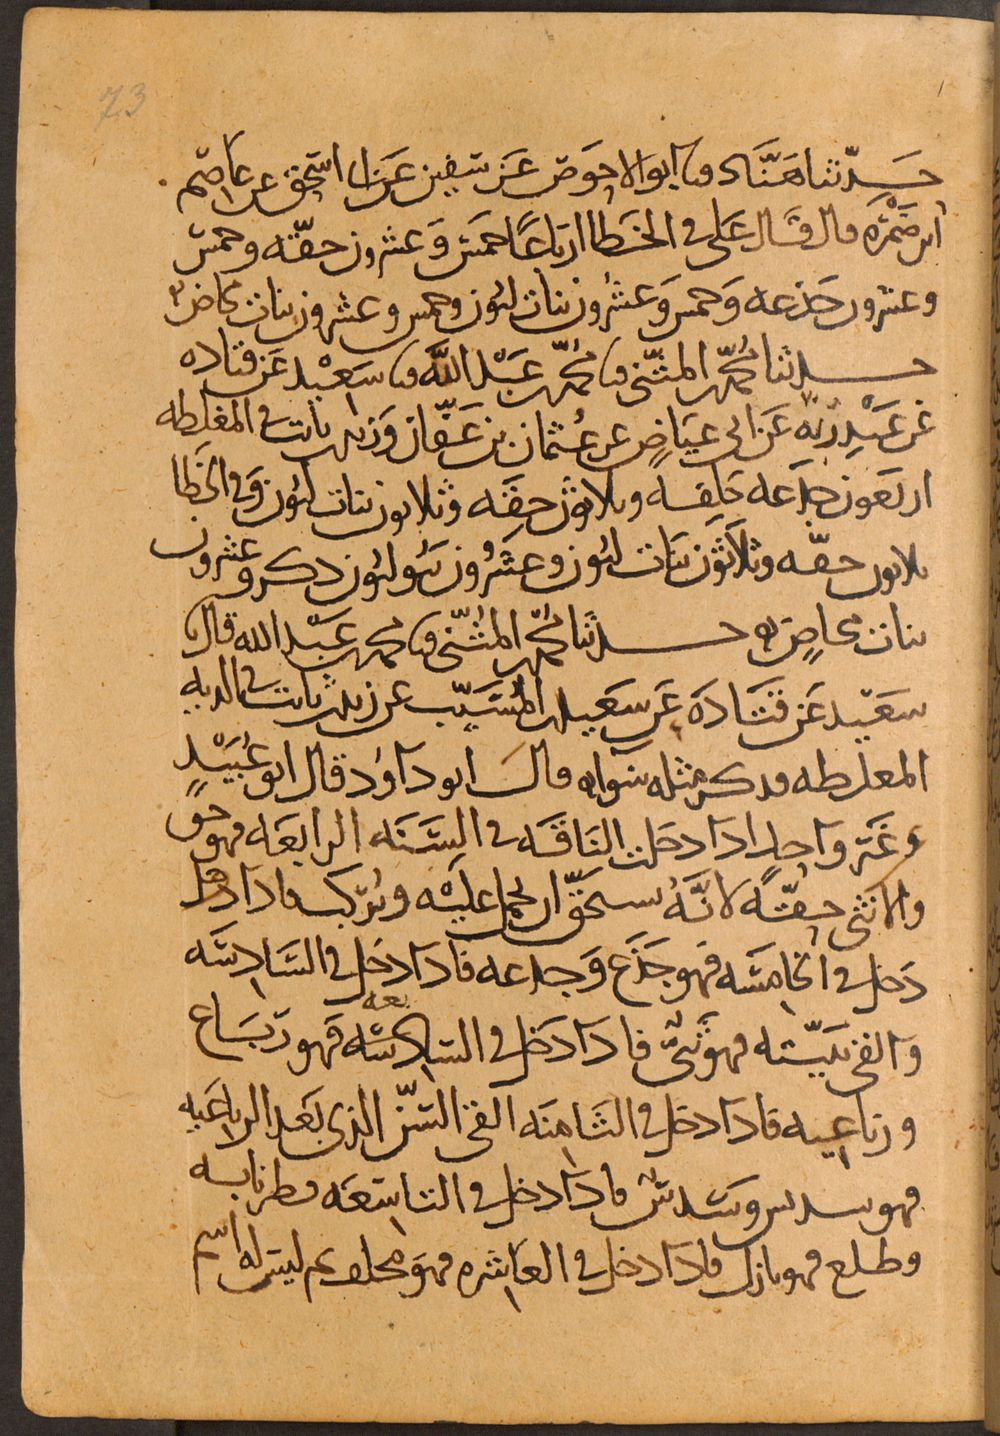 73
حدثنا هناد نا ابو الاحوص عن سفين عن ابي اسحق عن عاصم
ابن ضمرة قال قال على في الخطا ارباعا خمس وعشرون حقة وخمس
وعشرون جذعه وخمس وعشرون بنات لبون وخمس وعشرون بنات مخاض
حدثنا محمد بن المثنى نا محمد بن عبد الله نا سعيد عن قتاده
عن عبد ربه عن ابي عياض عن عثمان بن عفان وزيد بن ثابت في المغلظه
اربعون جذعه خلفه وثلاثون حقه وثلاثون بنات لبون وفي الخطا
ثلاثون حقه وثلاثون بنات لبون وعشرون بنو لبون ذكر وعشرون
بنات مخاض حدثنا محمد بن المثنى نا محمد بن عبد الله قال نا
سعيد عن قتادة عن سعيد بن المسيب عن زيد بن ثابت في الديه
المغلظه فذكر مثله سوا قال ابو داود قال ابو عبيد
وغير واحد اذا دخلت الناقه في السنه الرابعه فهو حق
والانثى حقة لانه يستحق ان يحمل عليه ويركب فاذا
دخل في الخامسه فهو جذع وجذعه فاذا دخل في السادسه
والقى ثنيته فهو ثني فاذا دخل في السابعه فهو رباع
ورباعيه فاذا دخل في الثامنه القى السن الذي بعد الرباعيه
فهو سديس وسدس فاذا دخل في التاسعه فطر نابه
وطلع فهو بازل فاذا دخل في العاشره فهو مخلف ثم ليس له اسم